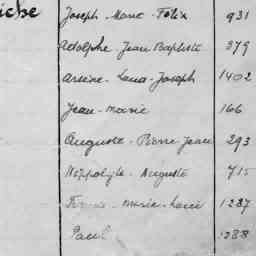 iche Joseph Marie Félix 931
Adolphe Jean Baptiste 379
Arsène Louis Joseph 1402
Jean-Marie 166
Auguste Pierre Jean 293
Hippolyte Auguste 715
Marie Louis 1287
Paul 1288